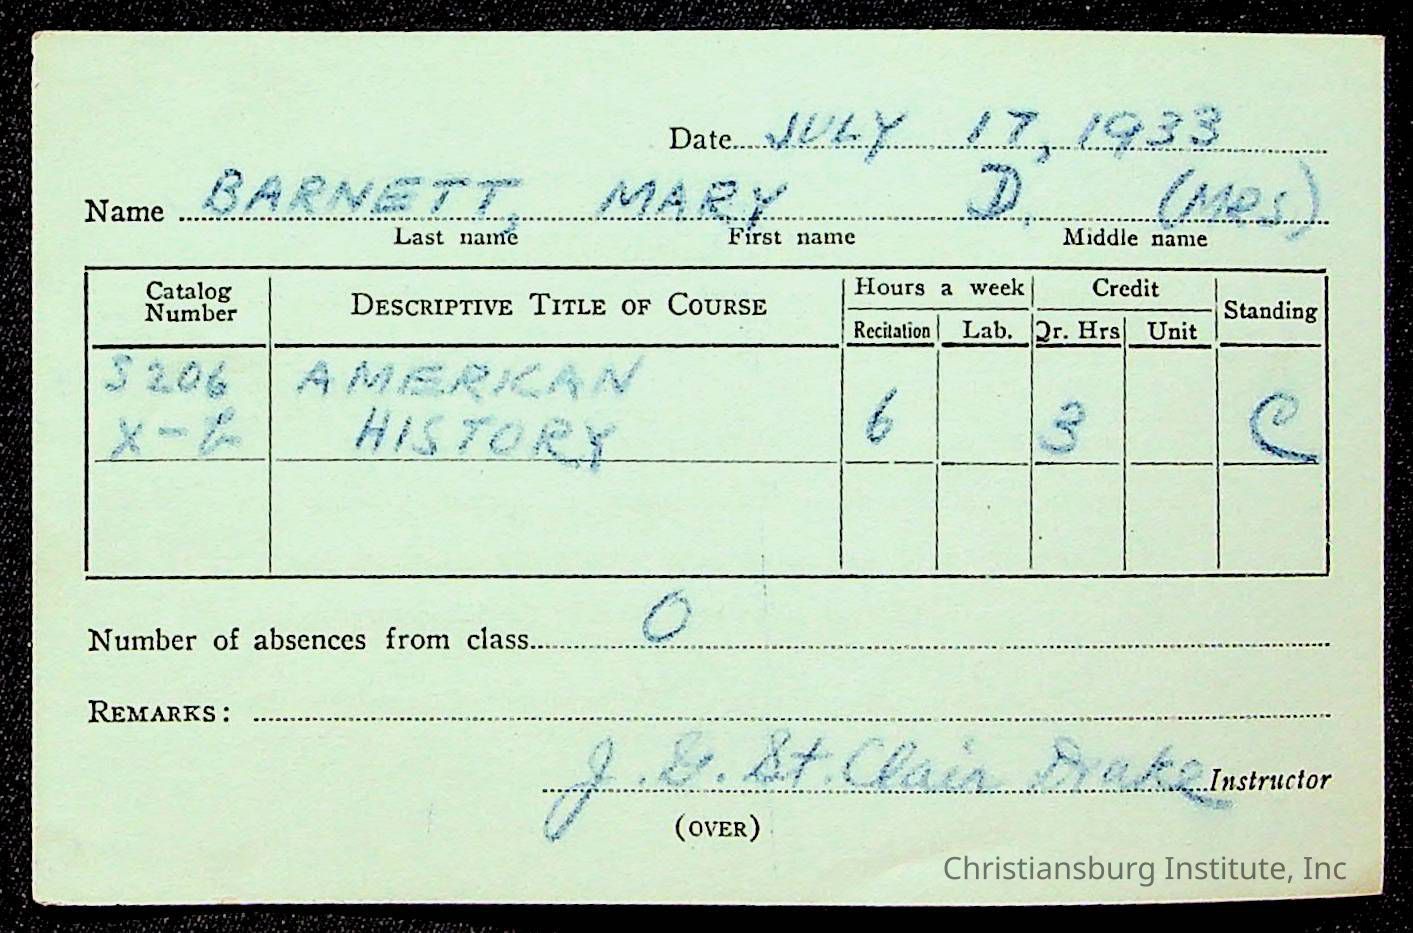 Date JULY 17, 1933
Name BARNETT, MARY D. (MRS)
Last name First name Middle name
Catalog Number DESCRIPTIVE TITLE OF COURSE Hours a week Credit Standing
Recitation Lab. Qr. Hrs Unit
S206 AMERICAN
X-2 HISTORY 6 3 C
Number of absences from class 0
REMARKS:
J. G. St. Clair Drake Instructor
(OVER)
Christiansburg Institute, Inc